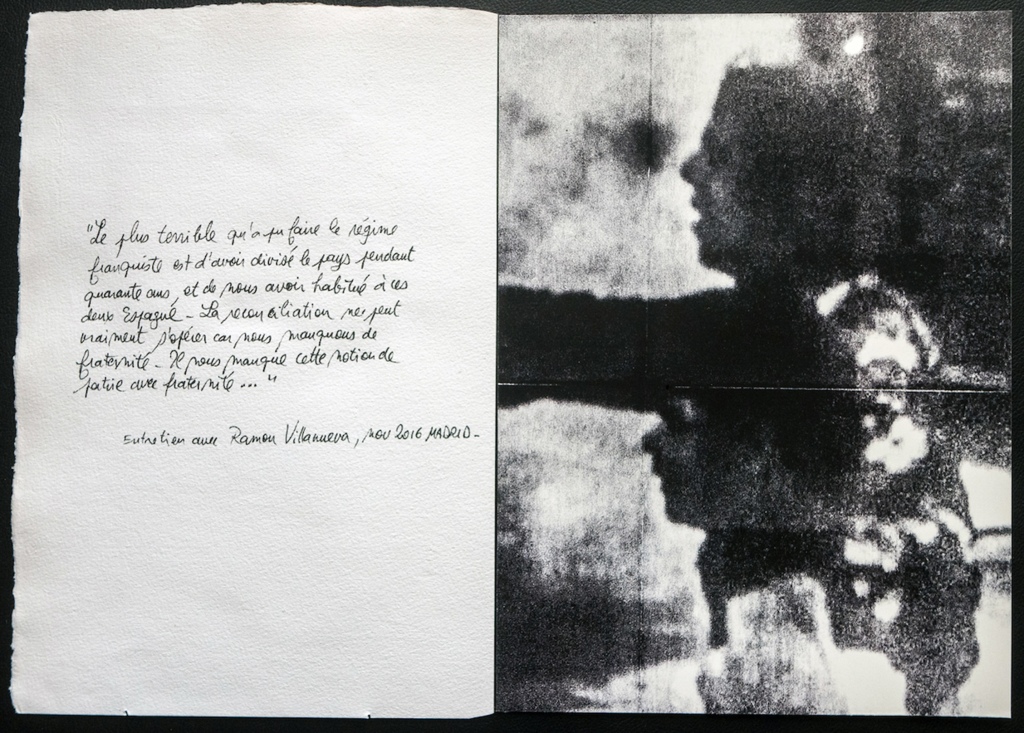 "Le plus terrible qu'a pu faire le régime
franquiste est d'avoir divisé le pays pendant
quarante ans, et de nous avoir habitué à ces
deux Espagne - La reconciliation ne peut
vraiment s'opérer car nous manquons de
fraternité - Il nous manque cette notion de
patrie avec fraternité ... "
Entretien avec Ramon Villanueva, nov 2016 MADRID -